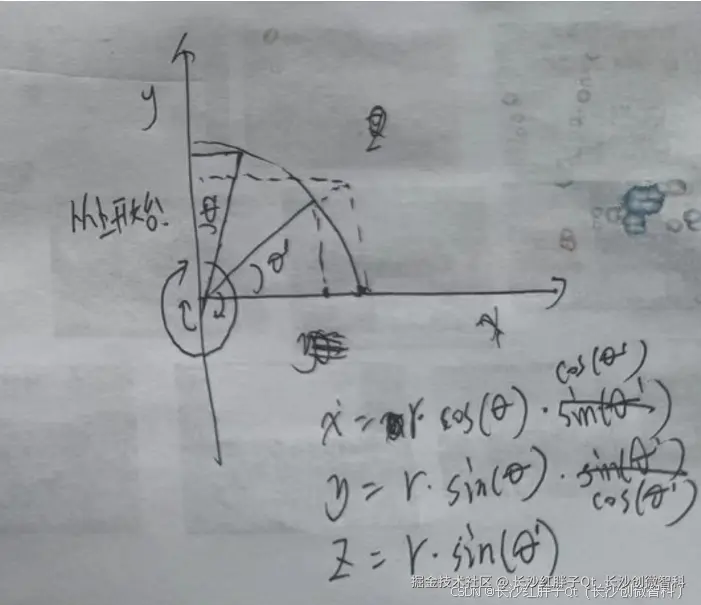 y
从上开始.
θ
θ'
x
x = r · cos(θ) · cos(θ')
y = r · sin(θ) · cos(θ')
z = r · sin(θ')
掘金技术社区 @ 长沙红胖子Qt_长沙创微智科
CSDN @长沙红胖子Qt（长沙创微智科）